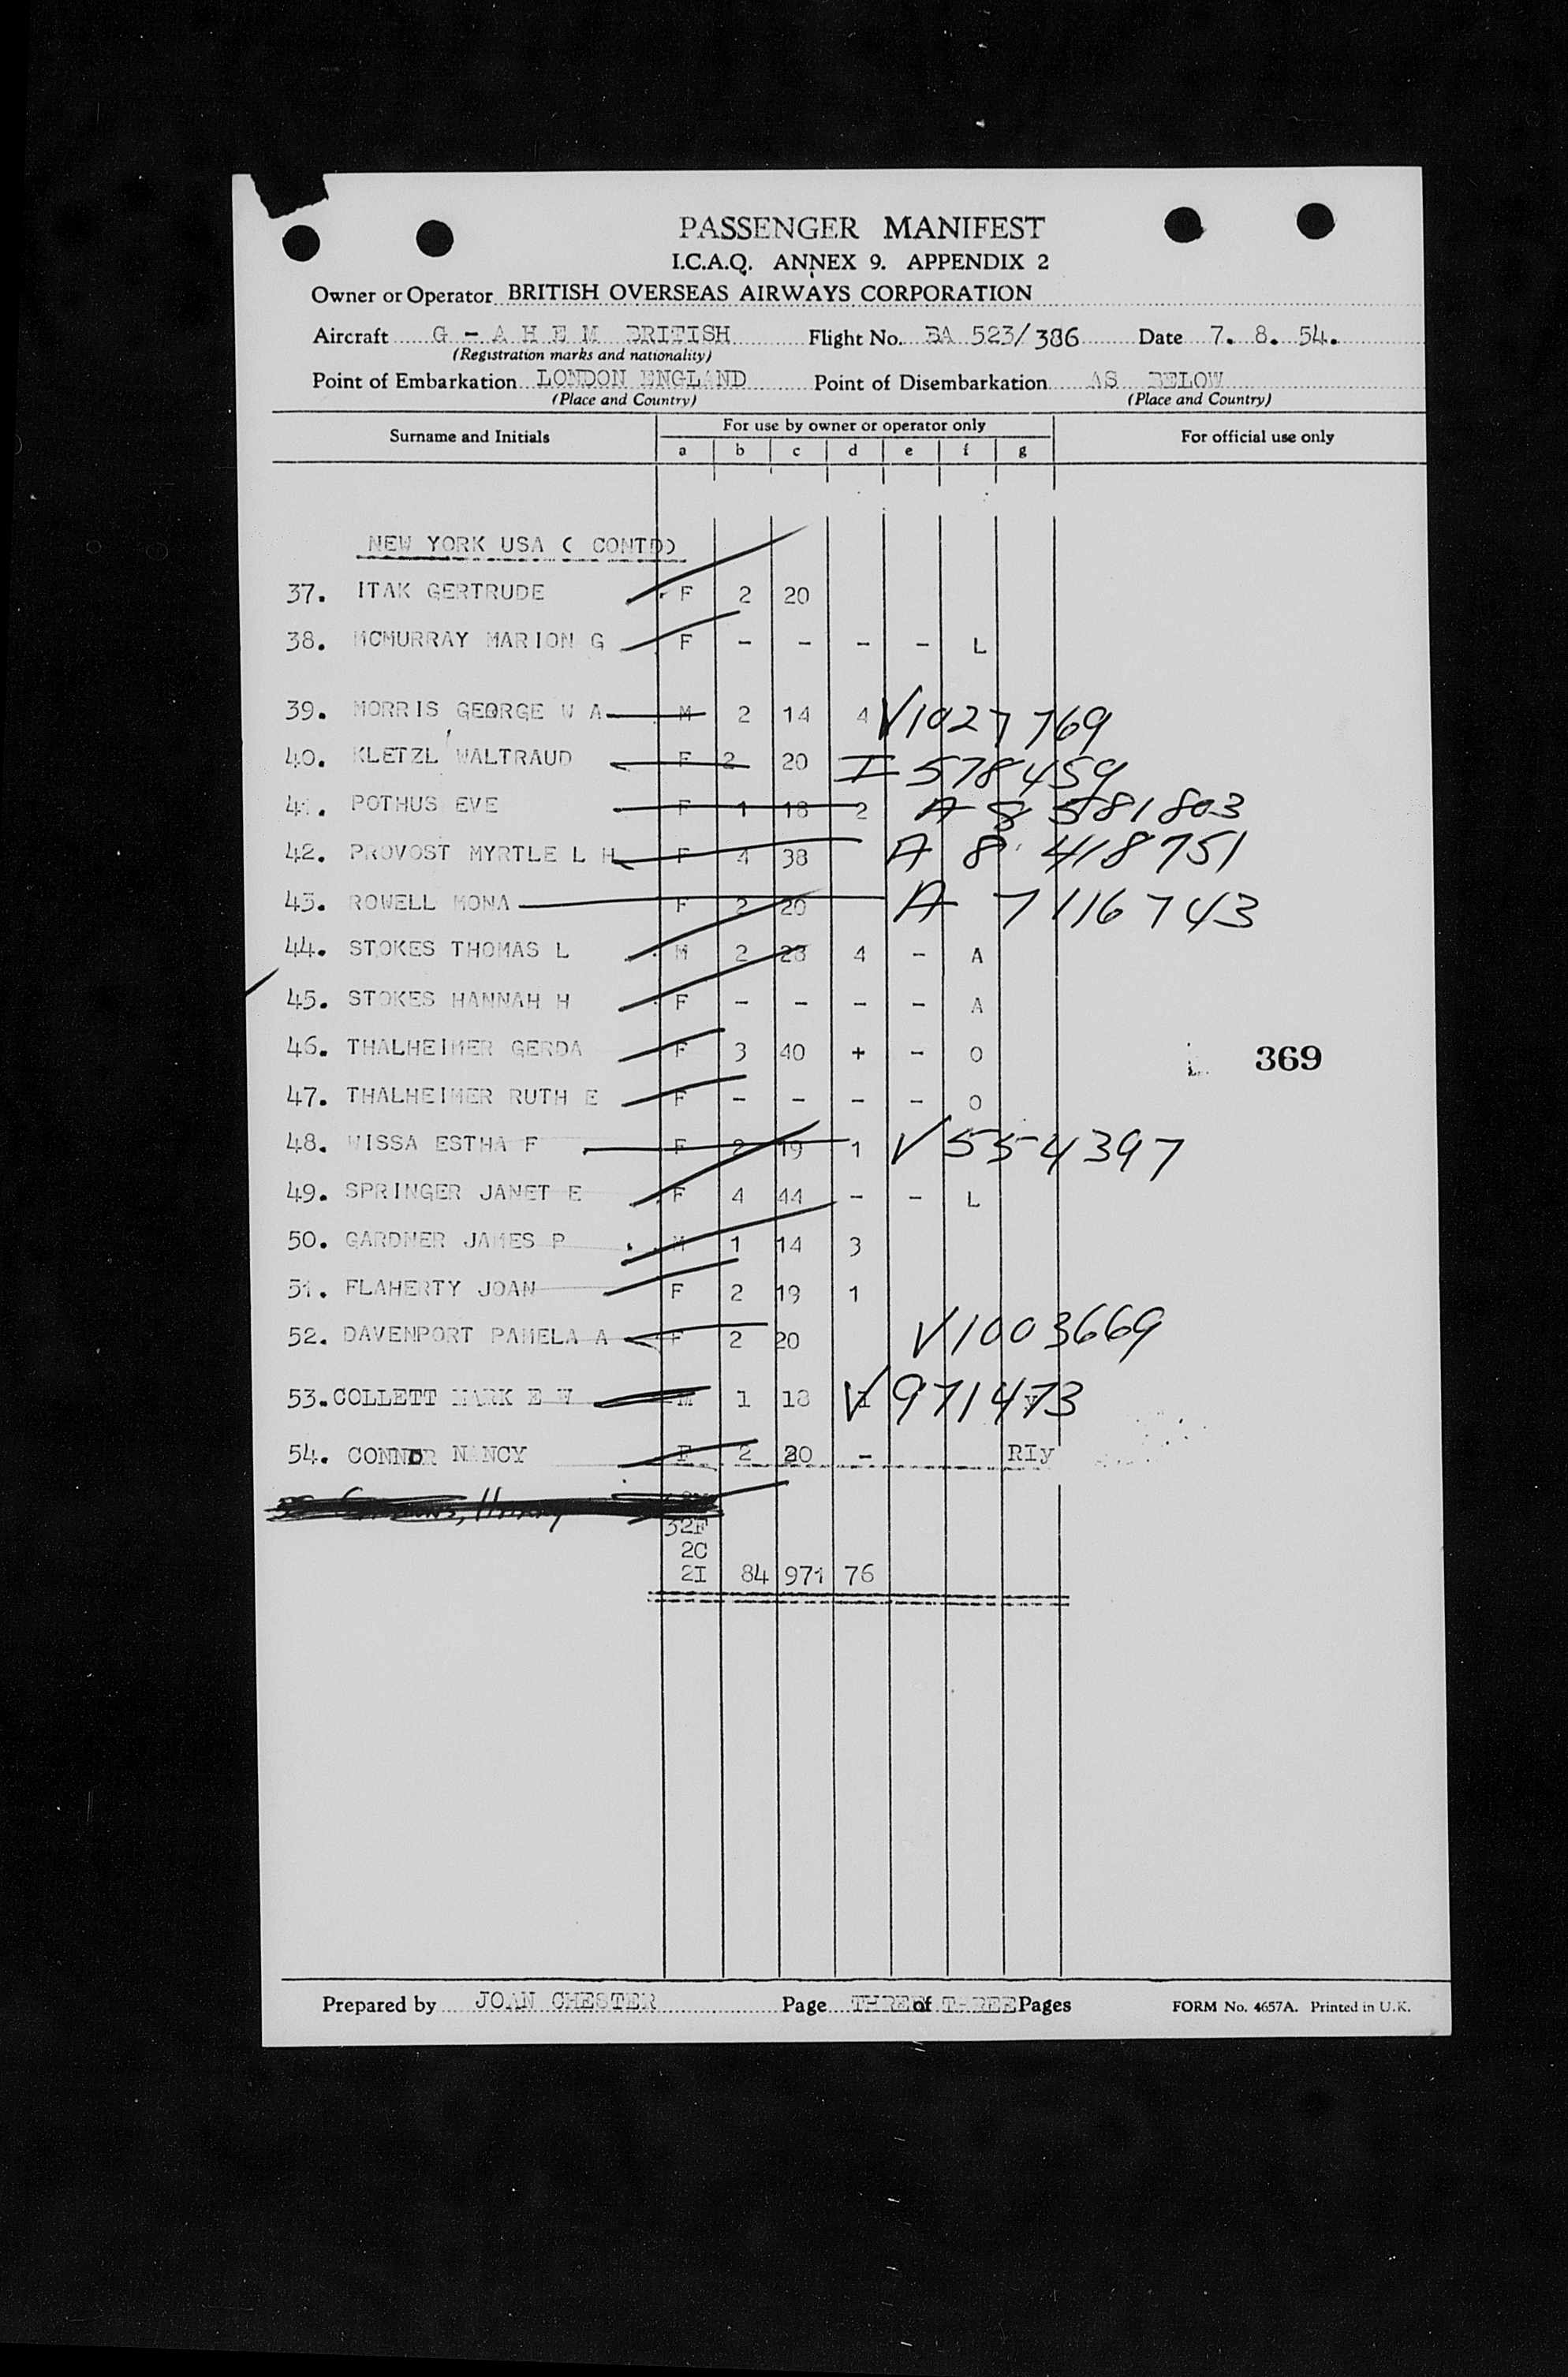 PASSENGER MANIFEST
I.C.A.Q. ANNEX 9. APPENDIX 2
Owner or Operator BRITISH OVERSEAS AIRWAYS CORPORATION
Aircraft G - A H E M BRITISH Flight No. BA 523/386 Date 7. 8. 54.
(Registration marks and nationality)
Point of Embarkation LONDON ENGLAND Point of Disembarkation AS BELOW
(Place and Country) (Place and Country)
Surname and Initials For use by owner or operator only For official use only
a b c d e f g
NEW YORK USA ( CONTD)
37. ITAK GERTRUDE F 2 20
38. MCMURRAY MARION G F - - - - L
39. MORRIS GEORGE W A M 2 14 4 V1027769
40. KLETZL WALTRAUD F 2 20 I 578459
41. POTHUS EVE F 1 18 2 A 8 581803
42. PROVOST MYRTLE L H F 4 38 A 8 418751
43. ROWELL MONA F 2 20 A 7 116743
44. STOKES THOMAS L M 2 28 4 - A
45. STOKES HANNAH H F - - - - A
46. THALHEIMER GERDA F 3 40 + - O
369
47. THALHEIMER RUTH E F - - - - O
48. WISSA ESTHA F F 2 19 1 V 554397
49. SPRINGER JANET E F 4 44 - - L
50. GARDNER JAMES P M 1 14 3
51. FLAHERTY JOAN F 2 19 1
52. DAVENPORT PAMELA A F 2 20 V1003669
53. COLLETT MARK E W M 1 18 V971473
54. CONNOR NANCY F 2 20 - RIy
32F
2C
2I 84 971 76
Prepared by JOAN CHESTER Page THREE of THREE Pages FORM No. 4657A. Printed in U.K.